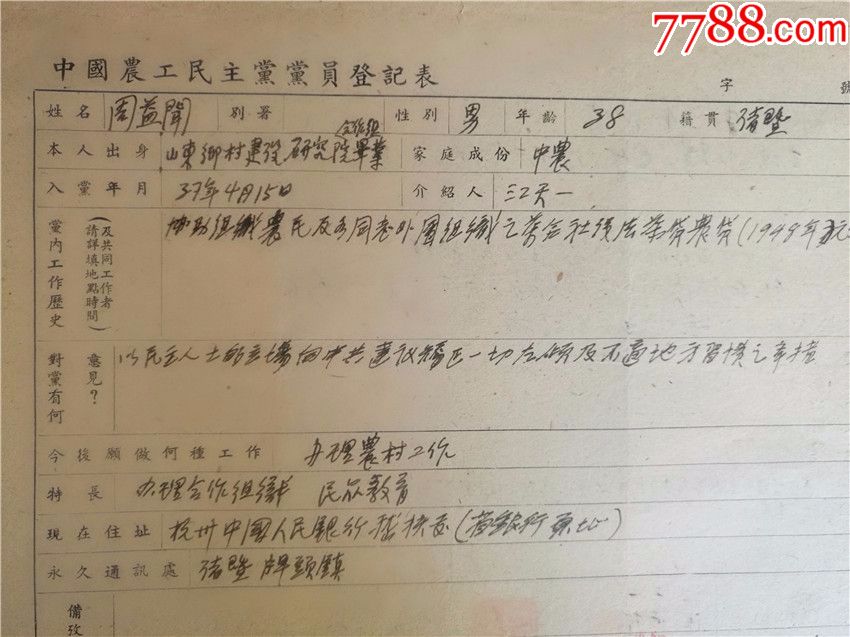 7788.com
中國農工民主黨黨員登記表
字 號
姓名 周益聞 別署 性別 男 年齡 38 籍貫 诸暨
合作组
本人出身 山東鄉村建设研究院畢業 家庭成份 中農
入黨年月 37年4月15日 介紹人 江天一
黨內工作歷史
(及共同工作者
請詳填地點時間)
協助组織農民及 同志外圍组織之 (1948年
對黨有何
意見?
以民主人士的立場向中共建议矯正一切左傾及不適地方習慣之
今後願做何種工作 办理農村工作
特長 办理合作组織 民众教育
現在住址 杭州中國人民銀行 (
永久通訊處 诸暨牌頭鎮
備攷